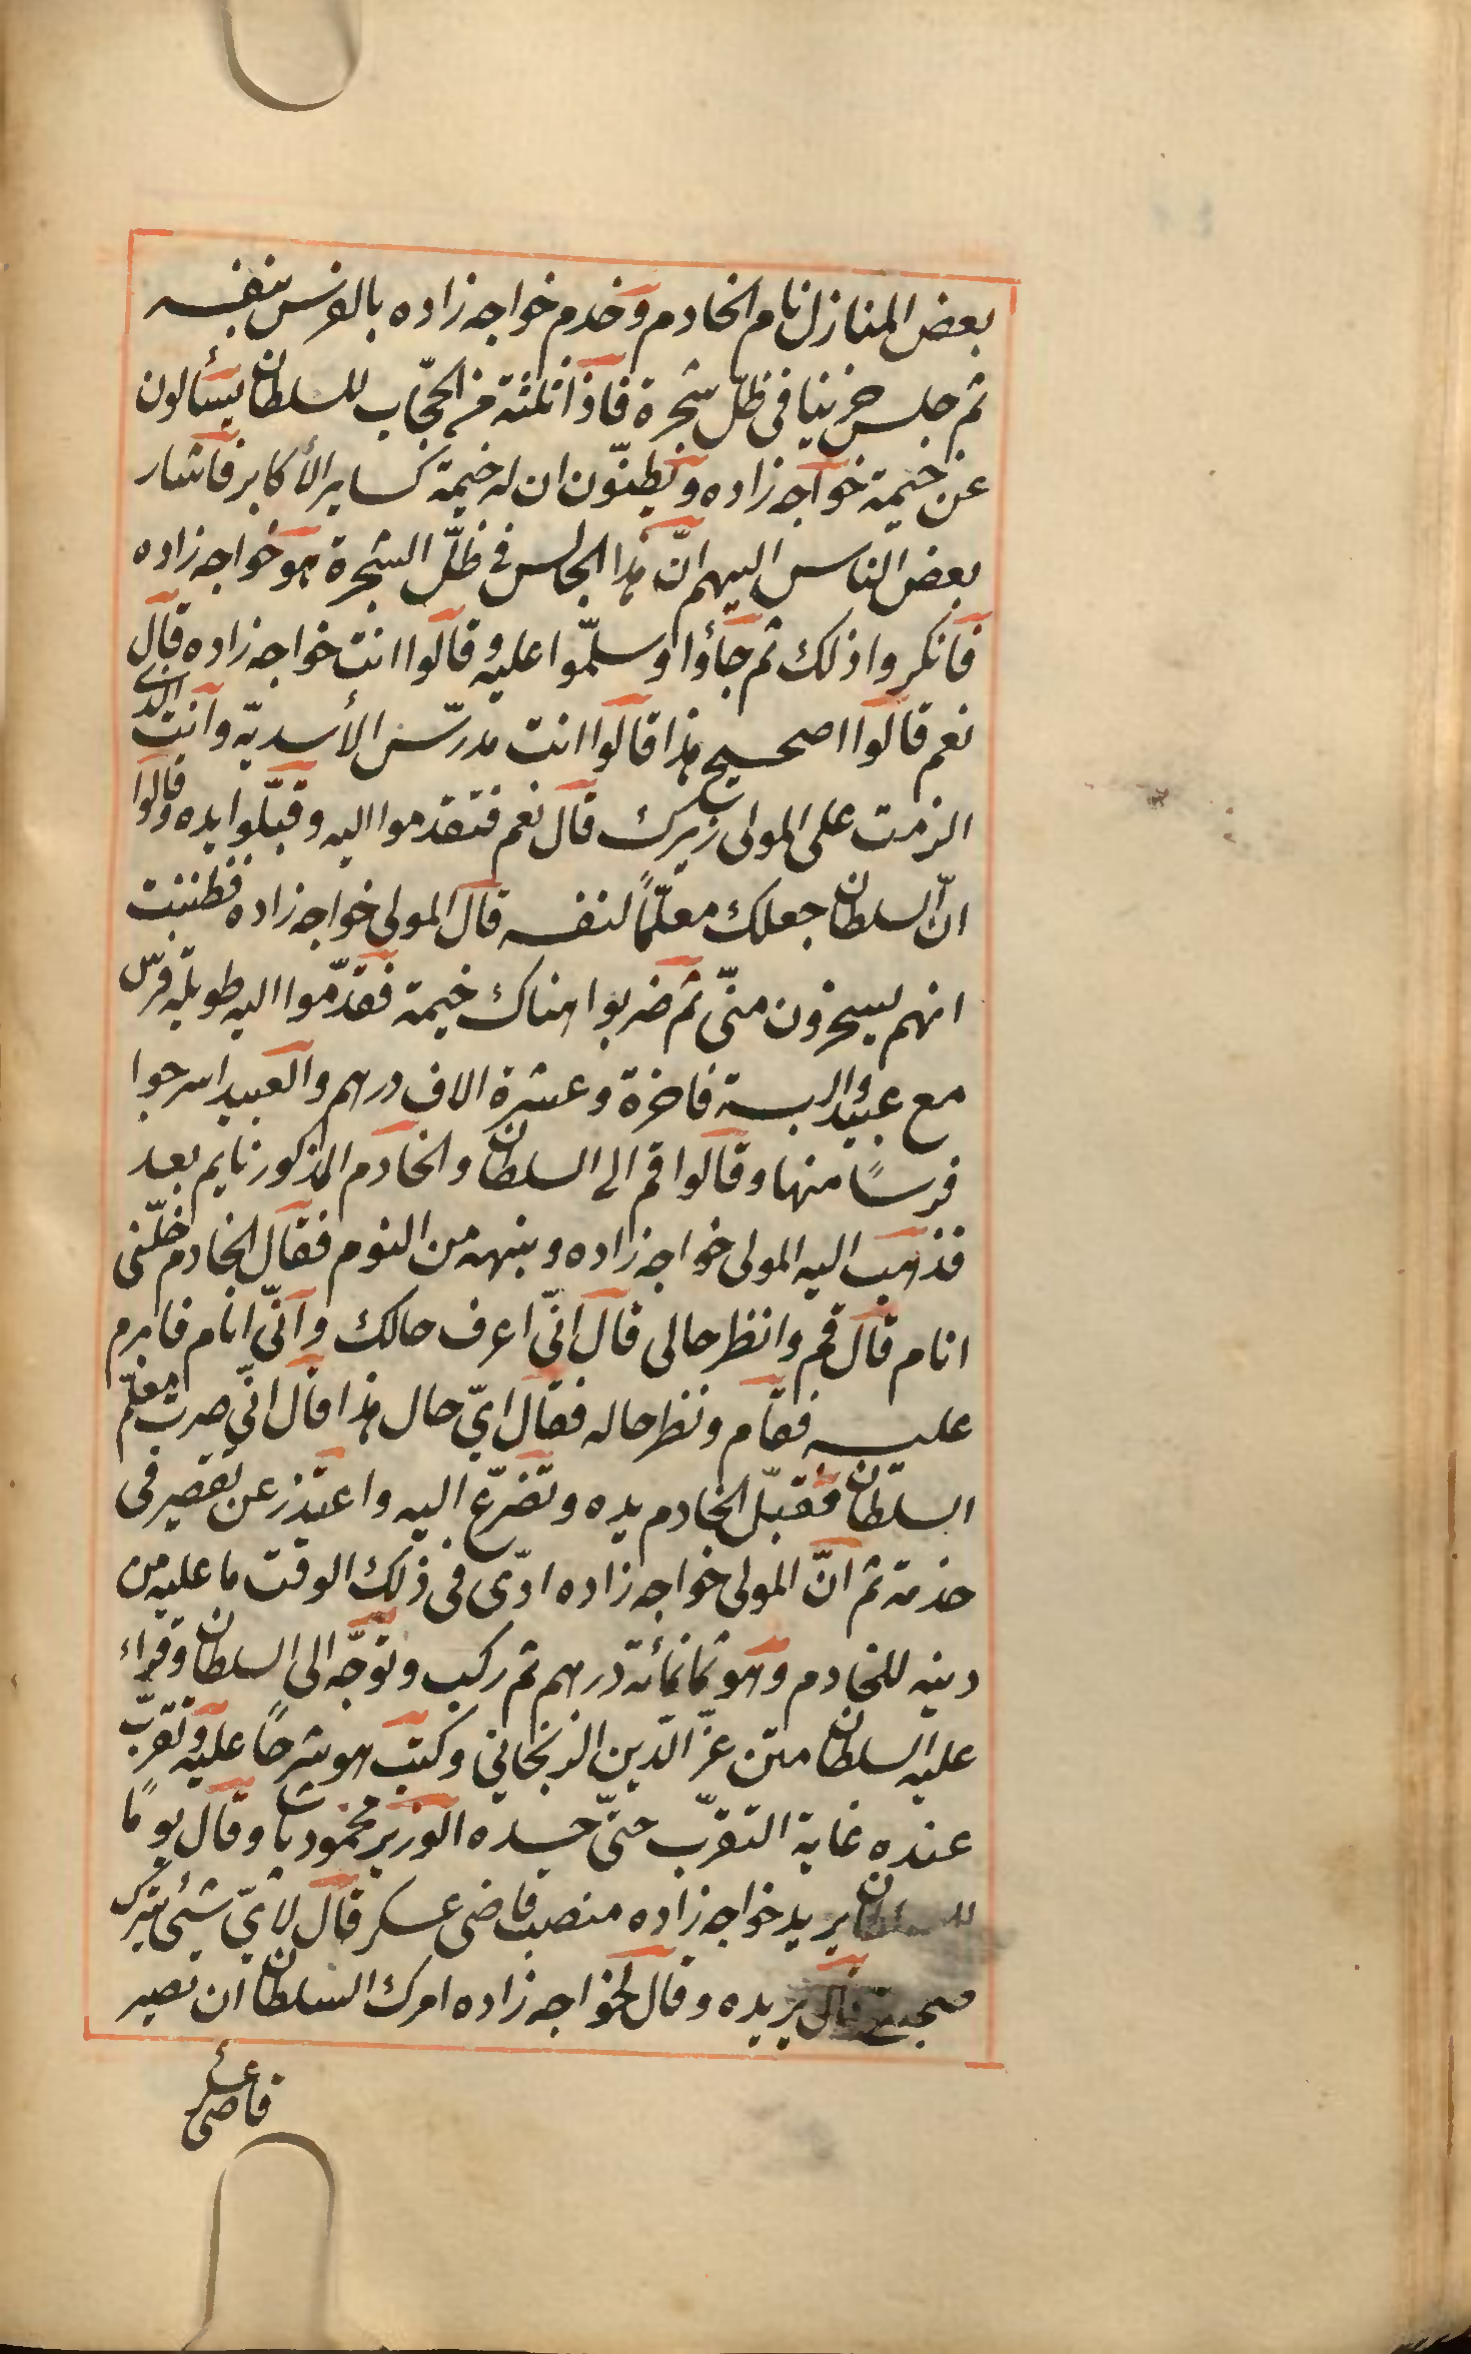 بعض المنازل نام الخادم وخدم خواجه زاده بالفرس بنفسه
ثم جلس حزينا فى ظلّ شجرة فاذا ثلثة من الحجّاب للسلطان يسألون
عن خيمة خواجه زاده ويظنّون ان له خيمة كساير الأكابر فاشار
بعض الناس اليهم انّ هذا الجالس فى ظلّ الشجرة هو خواجه زاده
فانكروا ذلك ثم جاؤا وسلّموا عليه وقالوا انت خواجه زاده قال
نعم قالوا اصحيح هذا قالوا انت مدرّس الأسديّه وانت الذى
الزمت على المولى زيرك قال نعم فتقدموا اليه وقبّلوا يده وقالوا
انّ السلطان جعلك معلّماً لنفسه قال المولى خواجه زاده فظننت
انهم يسخرون منّى ثم ضربوا هناك خيمة فقدّموا اليه طويلة فرس
مع عبيد والبسة فاخرة وعشرة الاف درهم والعبيد اسرجوا
فرساً منها وقالوا قم الى السلطان والخادم المذكور نايم بعد
فذهب اليه المولى خواجه زاده وينبهه من النوم فقال الخادم خلّنى
انام قال قم وانظر حالى قال انّى اعرف حالك وانّى انام فابرم
عليه فقام ونظر حاله فقال اىّ حال هذا قال انّى صرت معلّم
السلطان فقبّل الخادم يده وتضرّع اليه واعتذر عن تقصير فى
خدمته ثم انّ المولى خواجه زاده ادّى فى ذلك الوقت ما عليه من
دينه للخادم وهو ثمانمأئة درهم ثم ركب وتوجّه الى السلطان وقراء
عليه السلطان متن عزّ الدّين الزنجانى وكتب هو شرحاً عليه وتقرّب
عنده غاية التقرّب حتّى حسده الوزير محمود پاشا وقال يوماً
للسلطان يريد خواجه زاده منصب قاضى عسكر قال لاىّ شيئ يترك
صحبتى قال يريده وقال لخواجه زاده امرك السلطان ان تصير
قاضى عسكر